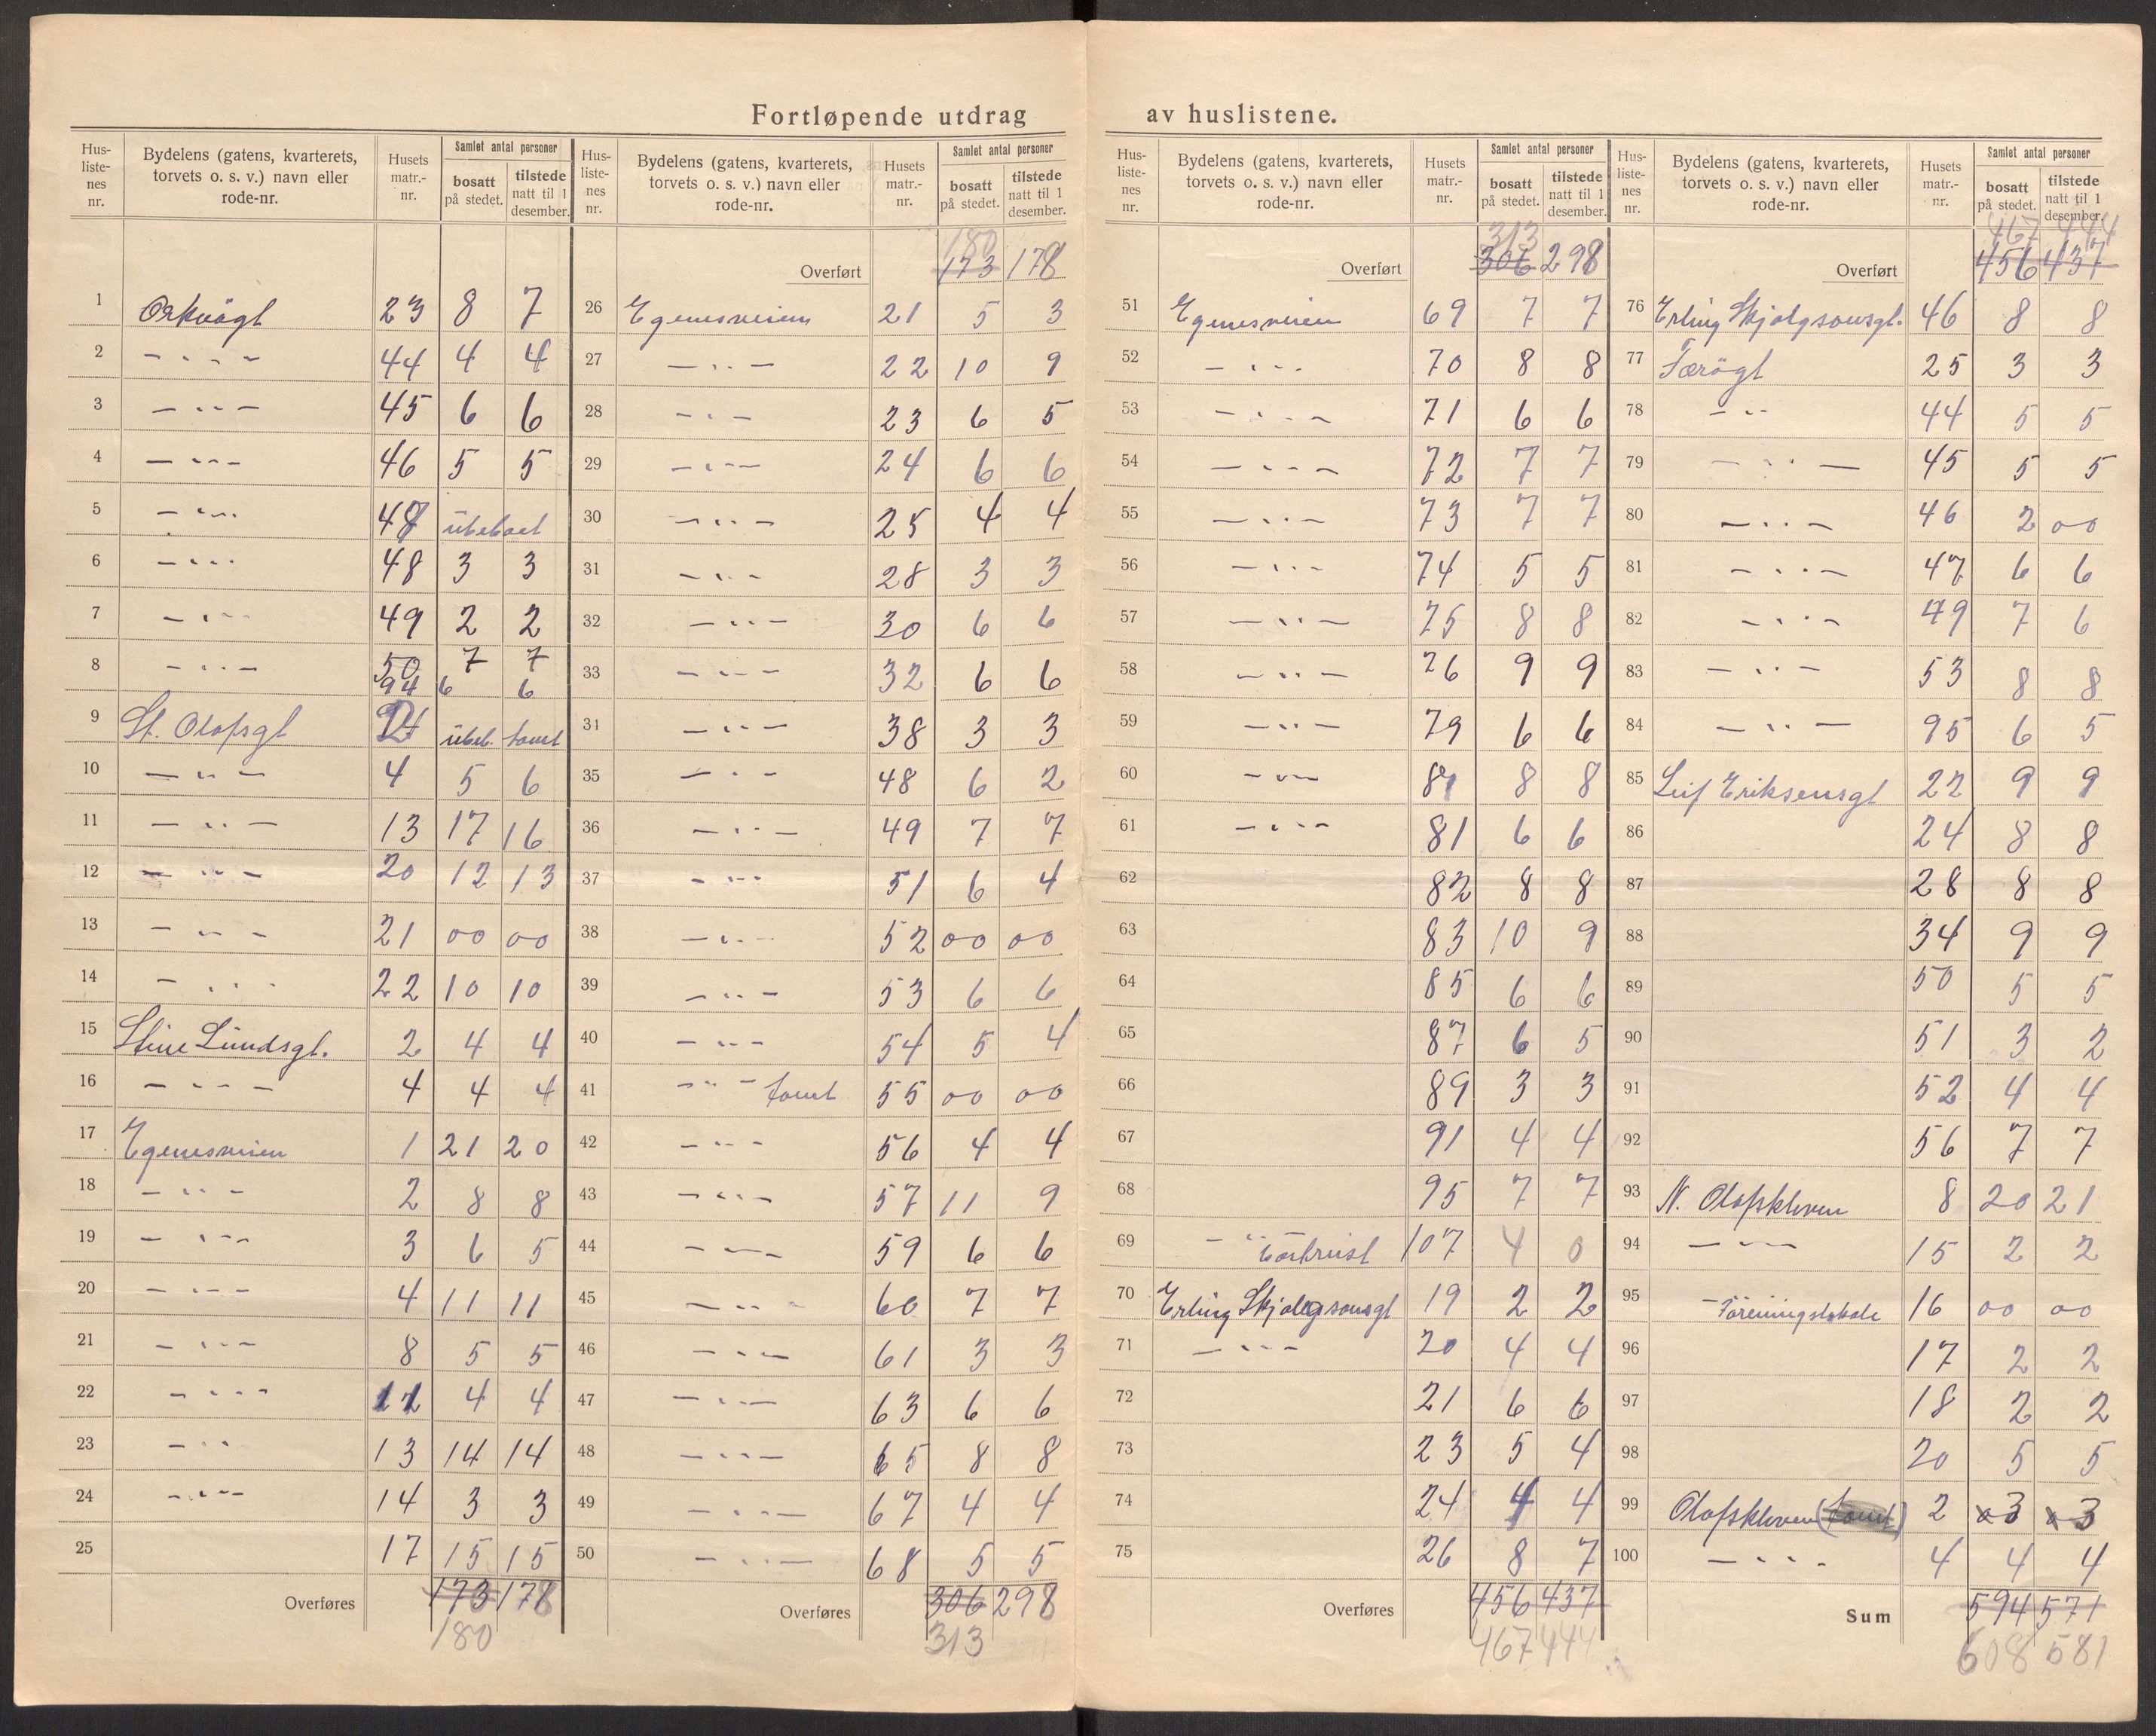 Fortløpende utdrag av huslistene.
Hus-liste-nes nr. | Bydelens (gatens, kvarterets, torvets o. s. v.) navn eller rode-nr. | Husets matr.-nr. | Samlet antal personer bosatt på stedet. | tilstede natt til 1 desember.
1 Orknögt 23 8 7
2 — " — 44 4 4
3 — " — 45 6 6
4 — " — 46 5 5
5 — " — 47 übeboet
6 — " — 48 3 3
7 — " — 49 2 2
8 — " — 50 7 7
94 6 6
9 St. Olafsgt übeb. tomt
10 — " — 4 5 6
11 — " — 13 17 16
12 — " — 20 12 13
13 — " — 21 00 00
14 — " — 22 10 10
15 Stine Lundsgt. 2 4 4
16 — " — 4 4 4
17 Egenesveien 1 21 20
18 — " — 2 8 8
19 — " — 3 6 5
20 — " — 4 11 11
21 — " — 8 5 5
22 — " — 12 4 4
23 — " — 13 14 14
24 — " — 14 3 3
25 17 15 15
Overføres 173 178
180
Hus-liste-nes nr. | Bydelens (gatens, kvarterets, torvets o. s. v.) navn eller rode-nr. | Husets matr.-nr. | Samlet antal personer bosatt på stedet. | tilstede natt til 1 desember.
180
Overført 173 178
26 Egenesveien 21 5 3
27 — " — 22 10 9
28 — " — 23 6 5
29 — " — 24 6 6
30 — " — 25 4 4
31 — " — 28 3 3
32 — " — 30 6 6
33 — " — 32 6 6
34 — " — 38 3 3
35 — " — 48 6 2
36 — " — 49 7 7
37 — " — 51 6 4
38 — " — 52 00 00
39 — " — 53 6 6
40 — " — 54 5 4
41 — " — tomt 55 00 00
42 — " — 56 4 4
43 — " — 57 11 9
44 — " — 59 6 6
45 — " — 60 7 7
46 — " — 61 3 3
47 — " — 63 6 6
48 — " — 65 8 8
49 — " — 67 4 4
50 — " — 68 5 5
Overføres 306 298
313
Hus-liste-nes nr. | Bydelens (gatens, kvarterets, torvets o. s. v.) navn eller rode-nr. | Husets matr.-nr. | Samlet antal personer bosatt på stedet. | tilstede natt til 1 desember.
313
Overført 306 298
51 Egenesveien 69 7 7
52 — " — 70 8 8
53 — " — 71 6 6
54 — " — 72 7 7
55 — " — 73 7 7
56 — " — 74 5 5
57 — " — 75 8 8
58 — " — 76 9 9
59 — " — 79 6 6
60 — " — 8 8
61 — " — 81 6 6
62 82 8 8
63 83 10 9
64 85 6 6
65 87 6 5
66 89 3 3
67 91 4 4
68 95 7 7
69 — " — 107 4 0
70 Erling Skjalgsonsgt 19 2 2
71 — " — 20 4 4
72 21 6 6
73 23 5 4
74 24 4 4
75 26 8 7
Overføres 456 437
467 444
Hus-liste-nes nr. | Bydelens (gatens, kvarterets, torvets o. s. v.) navn eller rode-nr. | Husets matr.-nr. | Samlet antal personer bosatt på stedet. | tilstede natt til 1 desember.
467 444
Overført 456 437
76 Erling Skjolgsonsgt. 46 8 8
77 Færögt 25 3 3
78 — " — 44 5 5
79 — " — 45 5 5
80 — " — 46 2 00
81 — " — 47 6 6
82 — " — 49 7 6
83 — " — 53 8 8
84 — " — 95 6 5
85 Leif Eriksensgt 22 9 9
86 24 8 8
87 28 8 8
88 34 9 9
89 50 5 5
90 51 3 2
91 52 4 4
92 56 7 7
93 N. Olafskleven 8 20 21
94 — " — 15 2 2
95 — Foreningslokale 16 00 00
96 17 2 2
97 18 2 2
98 20 5 5
99 Olafskleven (tomt) 2 3 3
100 — " — 4 4 4
Sum 594 571
608 581